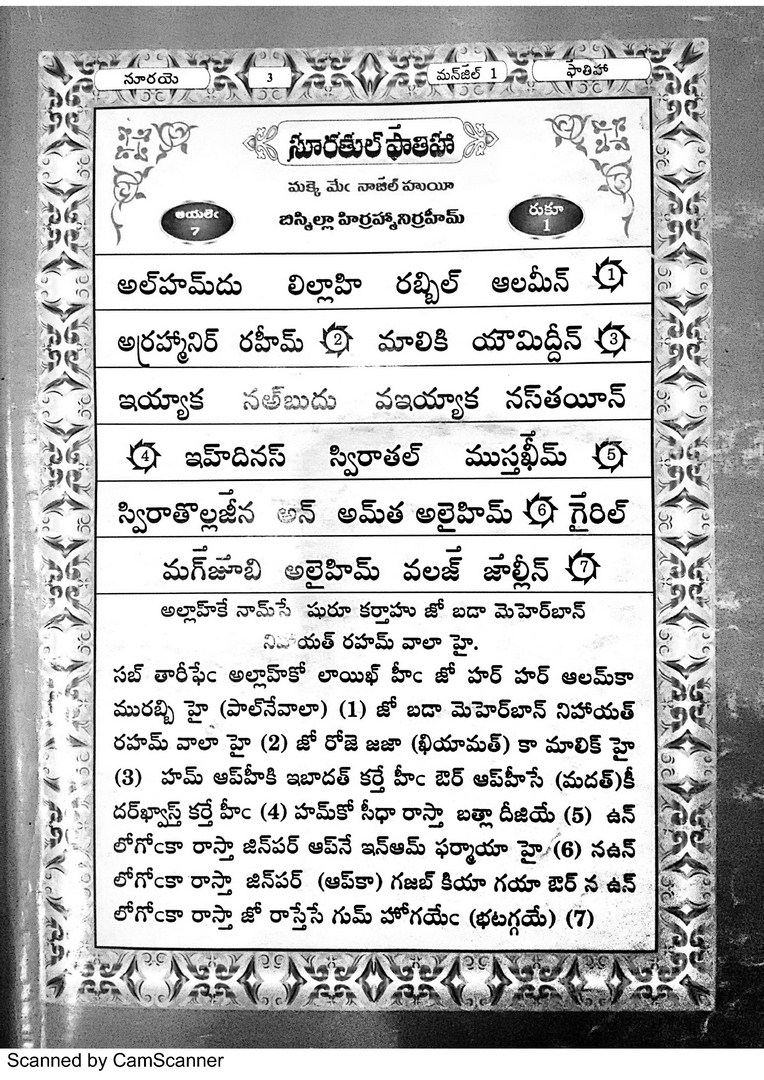 నూరయె 3 మన్‌జిల్ 1 ఫాతిహా
సూరతుల్ ఫాతిహా
మక్కె మేఁ నాజిల్ హుయీ
ఆయతెఁ 7 బిస్మిల్లా హిర్రహ్మానిర్రహీమ్ రుకూ 1
అల్‌హమ్‌దు లిల్లాహి రబ్బిల్ ఆలమీన్ 1
అర్రహ్మానిర్ రహీమ్ 2 మాలికి యౌమిద్దీన్ 3
ఇయ్యాక నఅ్‌బుదు వఇయ్యాక నస్‌తయీన్
4 ఇహ్‌దినస్ స్విరాతల్ ముస్తఖీమ్ 5
స్విరాతొల్లజీన అన్ అమ్‌త అలైహిమ్ 6 గైరిల్
మగ్‌జూబి అలైహిమ్ వలజ్ జాల్లీన్ 7
అల్లాహ్‌కే నామ్‌సే షురూ కర్తాహు జో బడా మెహెర్‌బాన్
నిహాయత్ రహమ్ వాలా హై.
సబ్ తారీఫేఁ అల్లాహ్‌కో లాయిఖ్ హీఁ జో హర్ హర్ ఆలమ్‌కా
మురబ్బి హై (పాల్‌నేవాలా) (1) జో బడా మెహెర్‌బాన్ నిహాయత్
రహమ్ వాలా హై (2) జో రోజె జజా (ఖియామత్) కా మాలిక్ హై
(3) హమ్ ఆప్‌హీకి ఇబాదత్ కర్తే హీఁ ఔర్ ఆప్‌హీసే (మదత్)కీ
దర్‌ఖ్వాస్త్ కర్తే హీఁ (4) హమ్‌కో సీధా రాస్తా బత్లా దీజియే (5) ఉన్
లోగోఁకా రాస్తా జిన్‌పర్ ఆప్‌నే ఇన్‌ఆమ్ ఫర్మాయా హై (6) నఉన్
లోగోఁకా రాస్తా జిన్‌పర్ (ఆప్‌కా) గజబ్ కియా గయా ఔర్ న ఉన్
లోగోఁకా రాస్తా జో రాస్తేసే గుమ్ హోగయేఁ (భటగ్గయే) (7)
Scanned by CamScanner